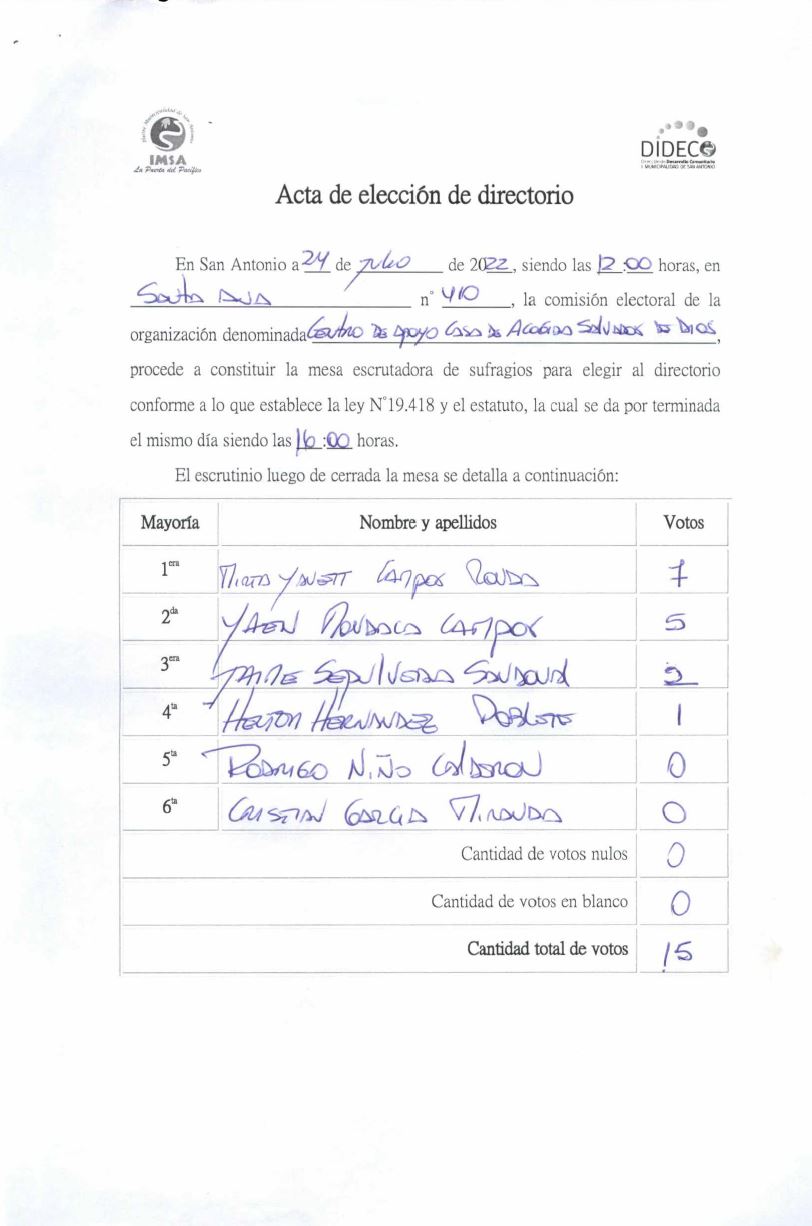 IMSA
La Puerta del Pacífico
DIDECO
Dirección de Desarrollo Comunitario
I. MUNICIPALIDAD DE SAN ANTONIO
Acta de elección de directorio
En San Antonio a 24 de julio de 2022, siendo las 12:00 horas, en
Santa ANA n° 410, la comisión electoral de la
organización denominada Centro DE Apoyo CASA DE ACOGIDA SALVADOS DE DIOS,
procede a constituir la mesa escrutadora de sufragios para elegir al directorio
conforme a lo que establece la ley N°19.418 y el estatuto, la cual se da por terminada
el mismo día siendo las 16:00 horas.
El escrutinio luego de cerrada la mesa se detalla a continuación:
Mayoría Nombre y apellidos Votos
1era MIRTA YANETT CAMPOS 7
2da YAEN CAMPOS 5
3era SEPULVEDA SANDOVAL 2
4ta HERNANDEZ POBLETE 1
5ta RODRIGO NIÑO CALDERON 0
6ta CRISTIAN GARCIA MIRANDA 0
Cantidad de votos nulos 0
Cantidad de votos en blanco 0
Cantidad total de votos 15